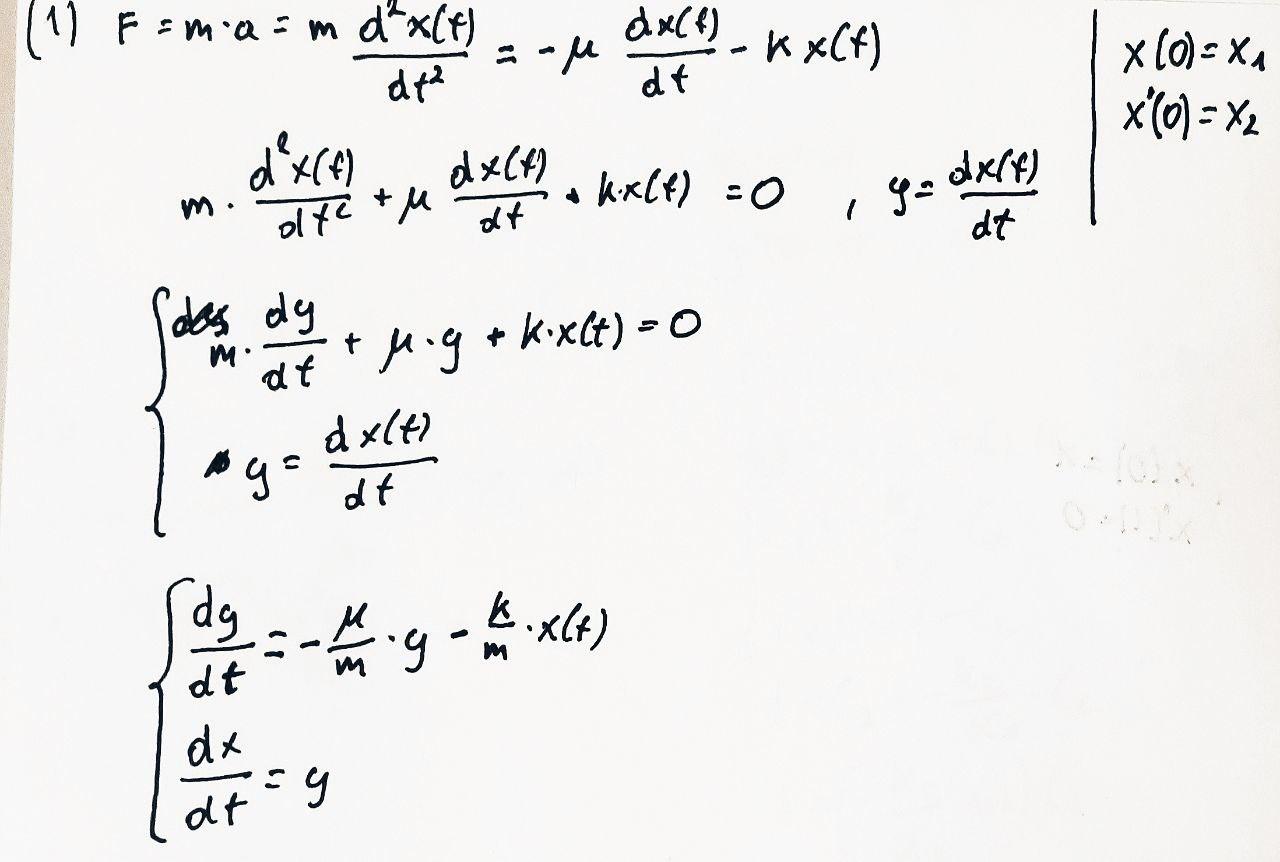 (1) F = m·a = m d²x(t)/dt² = -μ dx(t)/dt - k x(t)
x(0) = x₁
x'(0) = x₂
m · d²x(t)/dt² + μ dx(t)/dt + k·x(t) = 0 , y = dx(t)/dt
m · dy/dt + μ·y + k·x(t) = 0
y = dx(t)/dt
dy/dt = -μ/m · y - k/m · x(t)
dx/dt = y